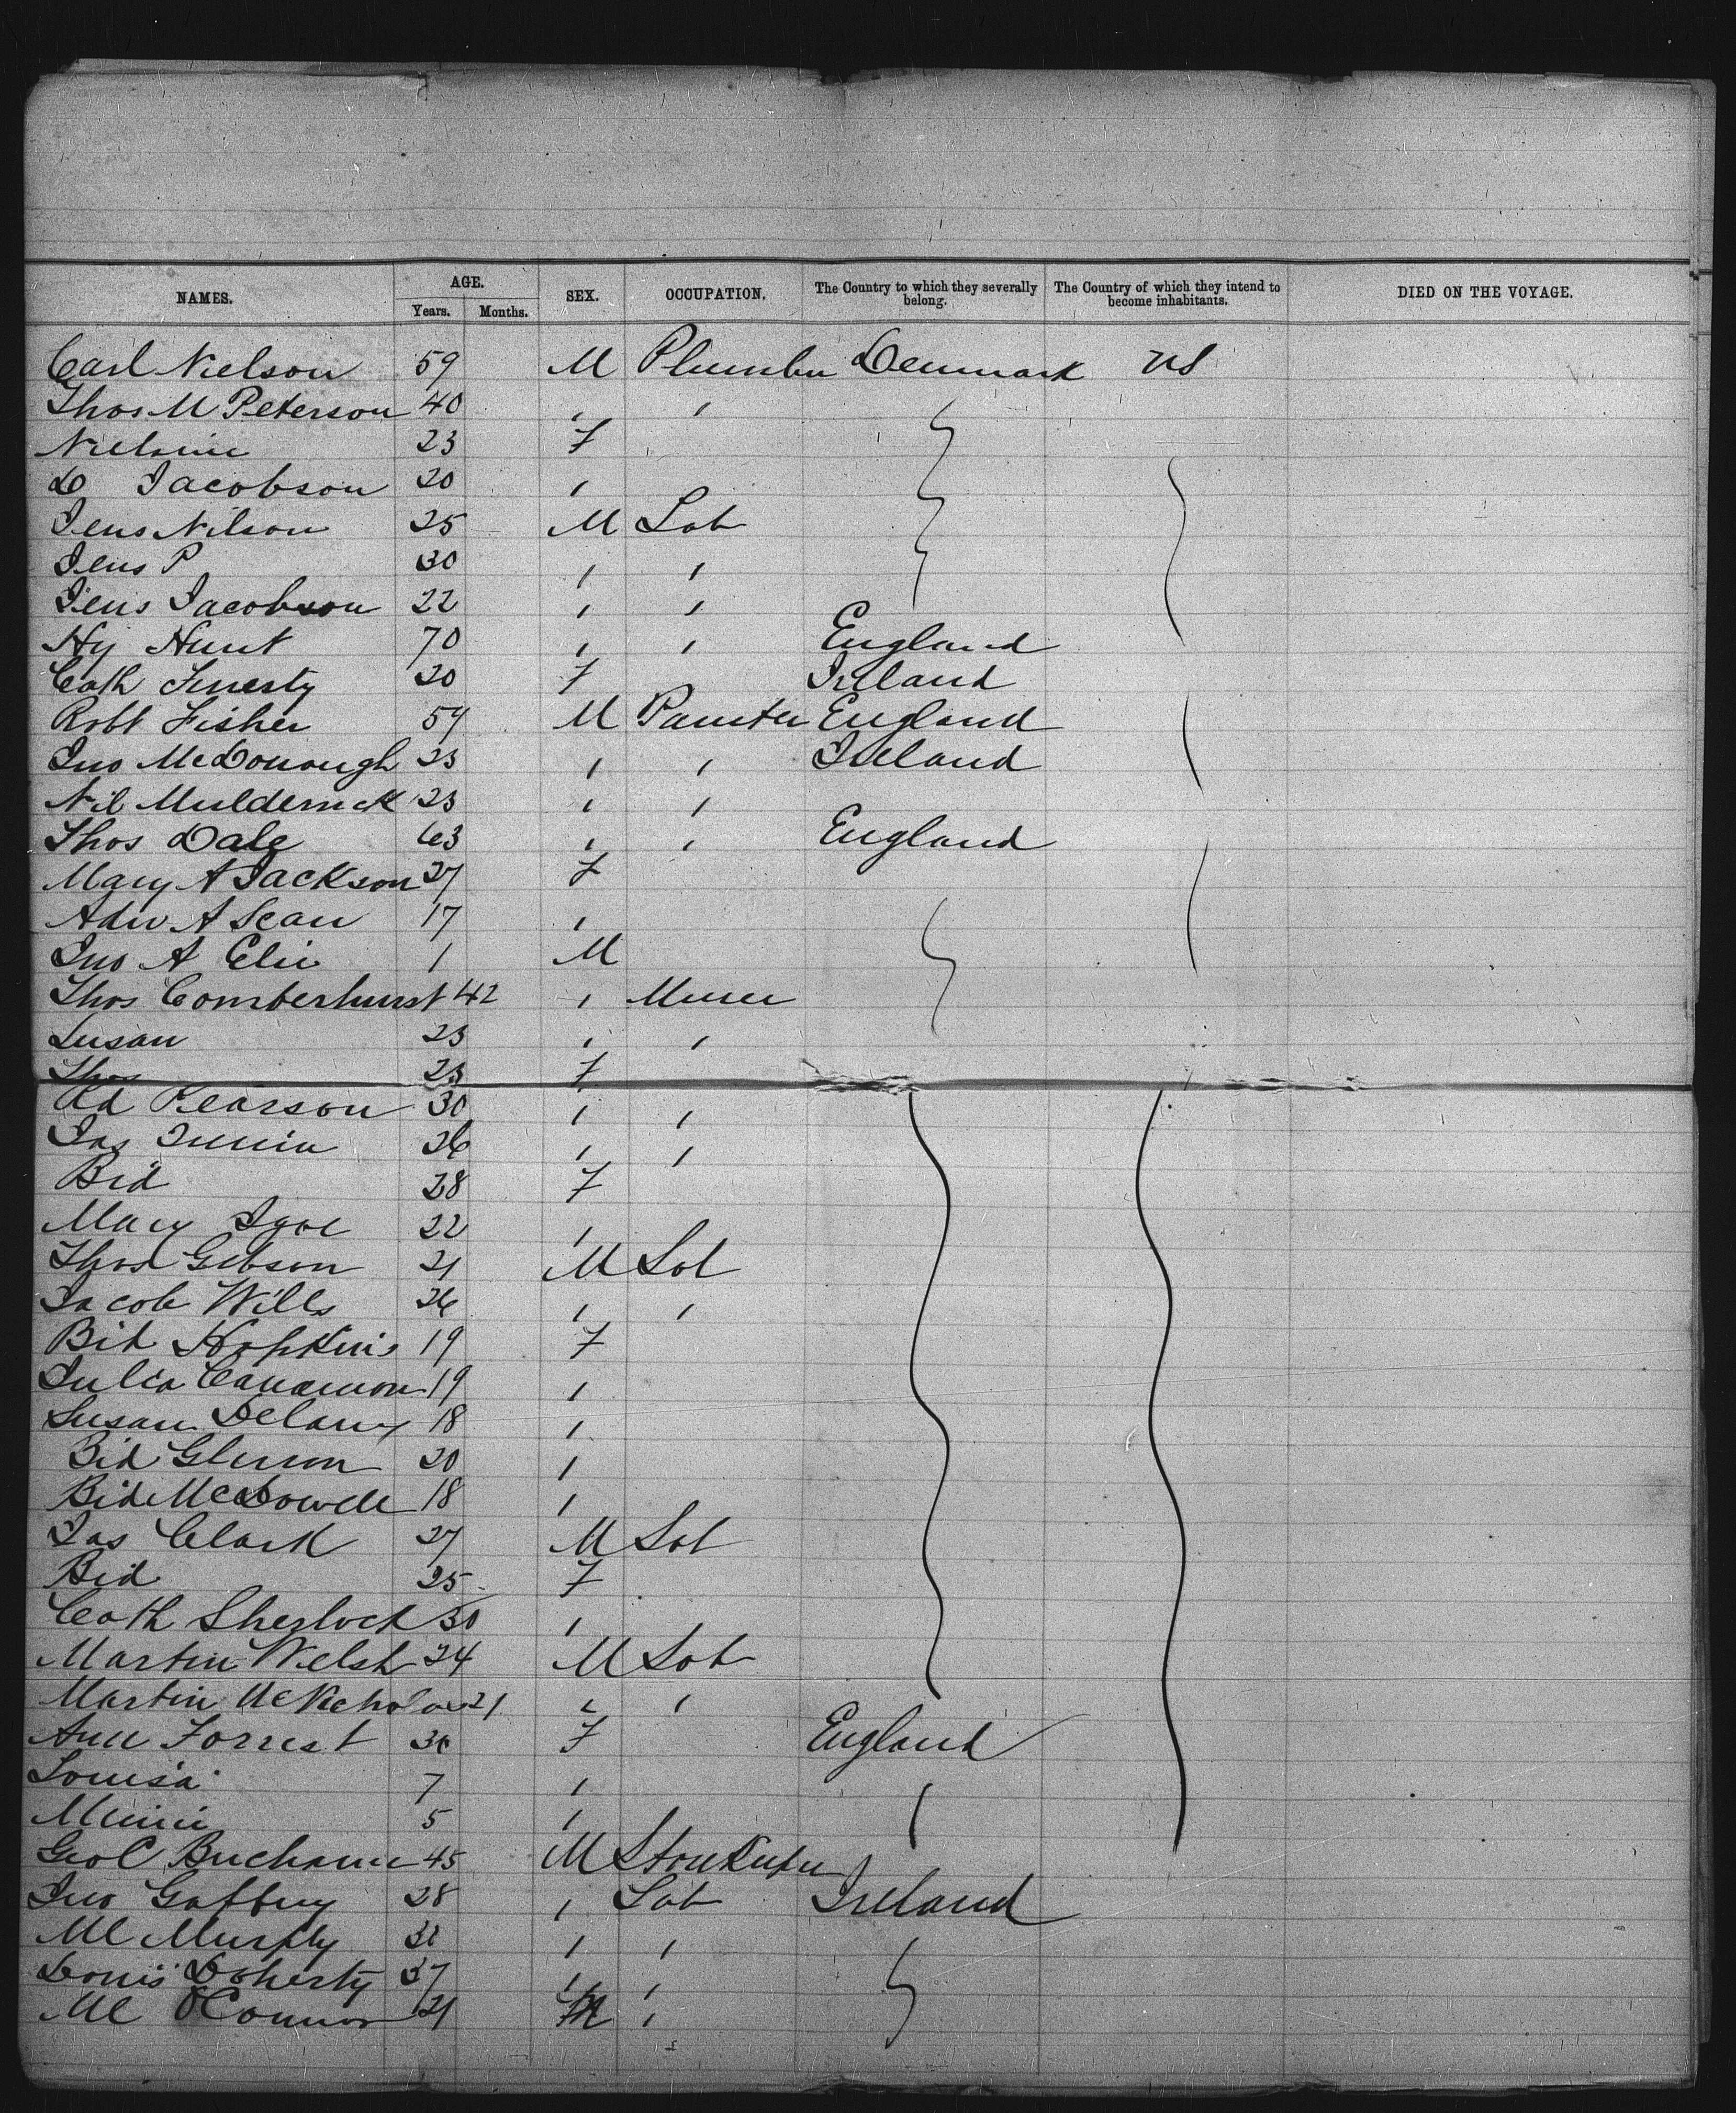 NAMES. AGE. Years. Months. SEX. OCCUPATION. The Country to which they severally belong. The Country of which they intend to become inhabitants. DIED ON THE VOYAGE.
Carl Nielson 59 M Plumber Denmark US
Thos M Peterson 40 , ,
Nielsine 23 F
D Jacobson 20 ,
Jens Nilson 25 M Lab
Jens P 30 , ,
Jens Jacobson 22 , ,
Hy Hunt 70 , , England
Cath Finesty 20 F Ireland
Robt Fisher 54 M Painter England
Jno McDonough 23 , , Ireland
Nil Mulderrick 23 , ,
Thos Dale 63 , , England
Mary A Jackson 27 F
A 17 ,
Jno A 1 M
Thos Comberhurst 42 , Miner
Susan 23 , ,
Thos 23 F
Ed Pearson 30 , ,
Jas 26 , ,
Bid 28 F
Mary Igoe 22 ,
Thos Gibson 21 M Lab
Jacob Wills 26 , ,
Bid Hopkins 19 F
Julia 19 ,
Susan Delany 18 ,
Bid Gleeson 20 ,
Bid McDowell 18 ,
Jas Clark 27 M Lab
Bid 25 F
Cath Sherlock 30 ,
Martin Welsh 24 M Lab
Martin McNicholas 21 , ,
Ann Forrest 30 F England
Louisa 7 ,
Minnie 5 ,
Geo C Buchanan 45 M Storekeeper
Jno Gaffney 28 , Lab Ireland
Ml Murphy , ,
Denis Doherty 37 , ,
Ml O'Connor 21 M ,